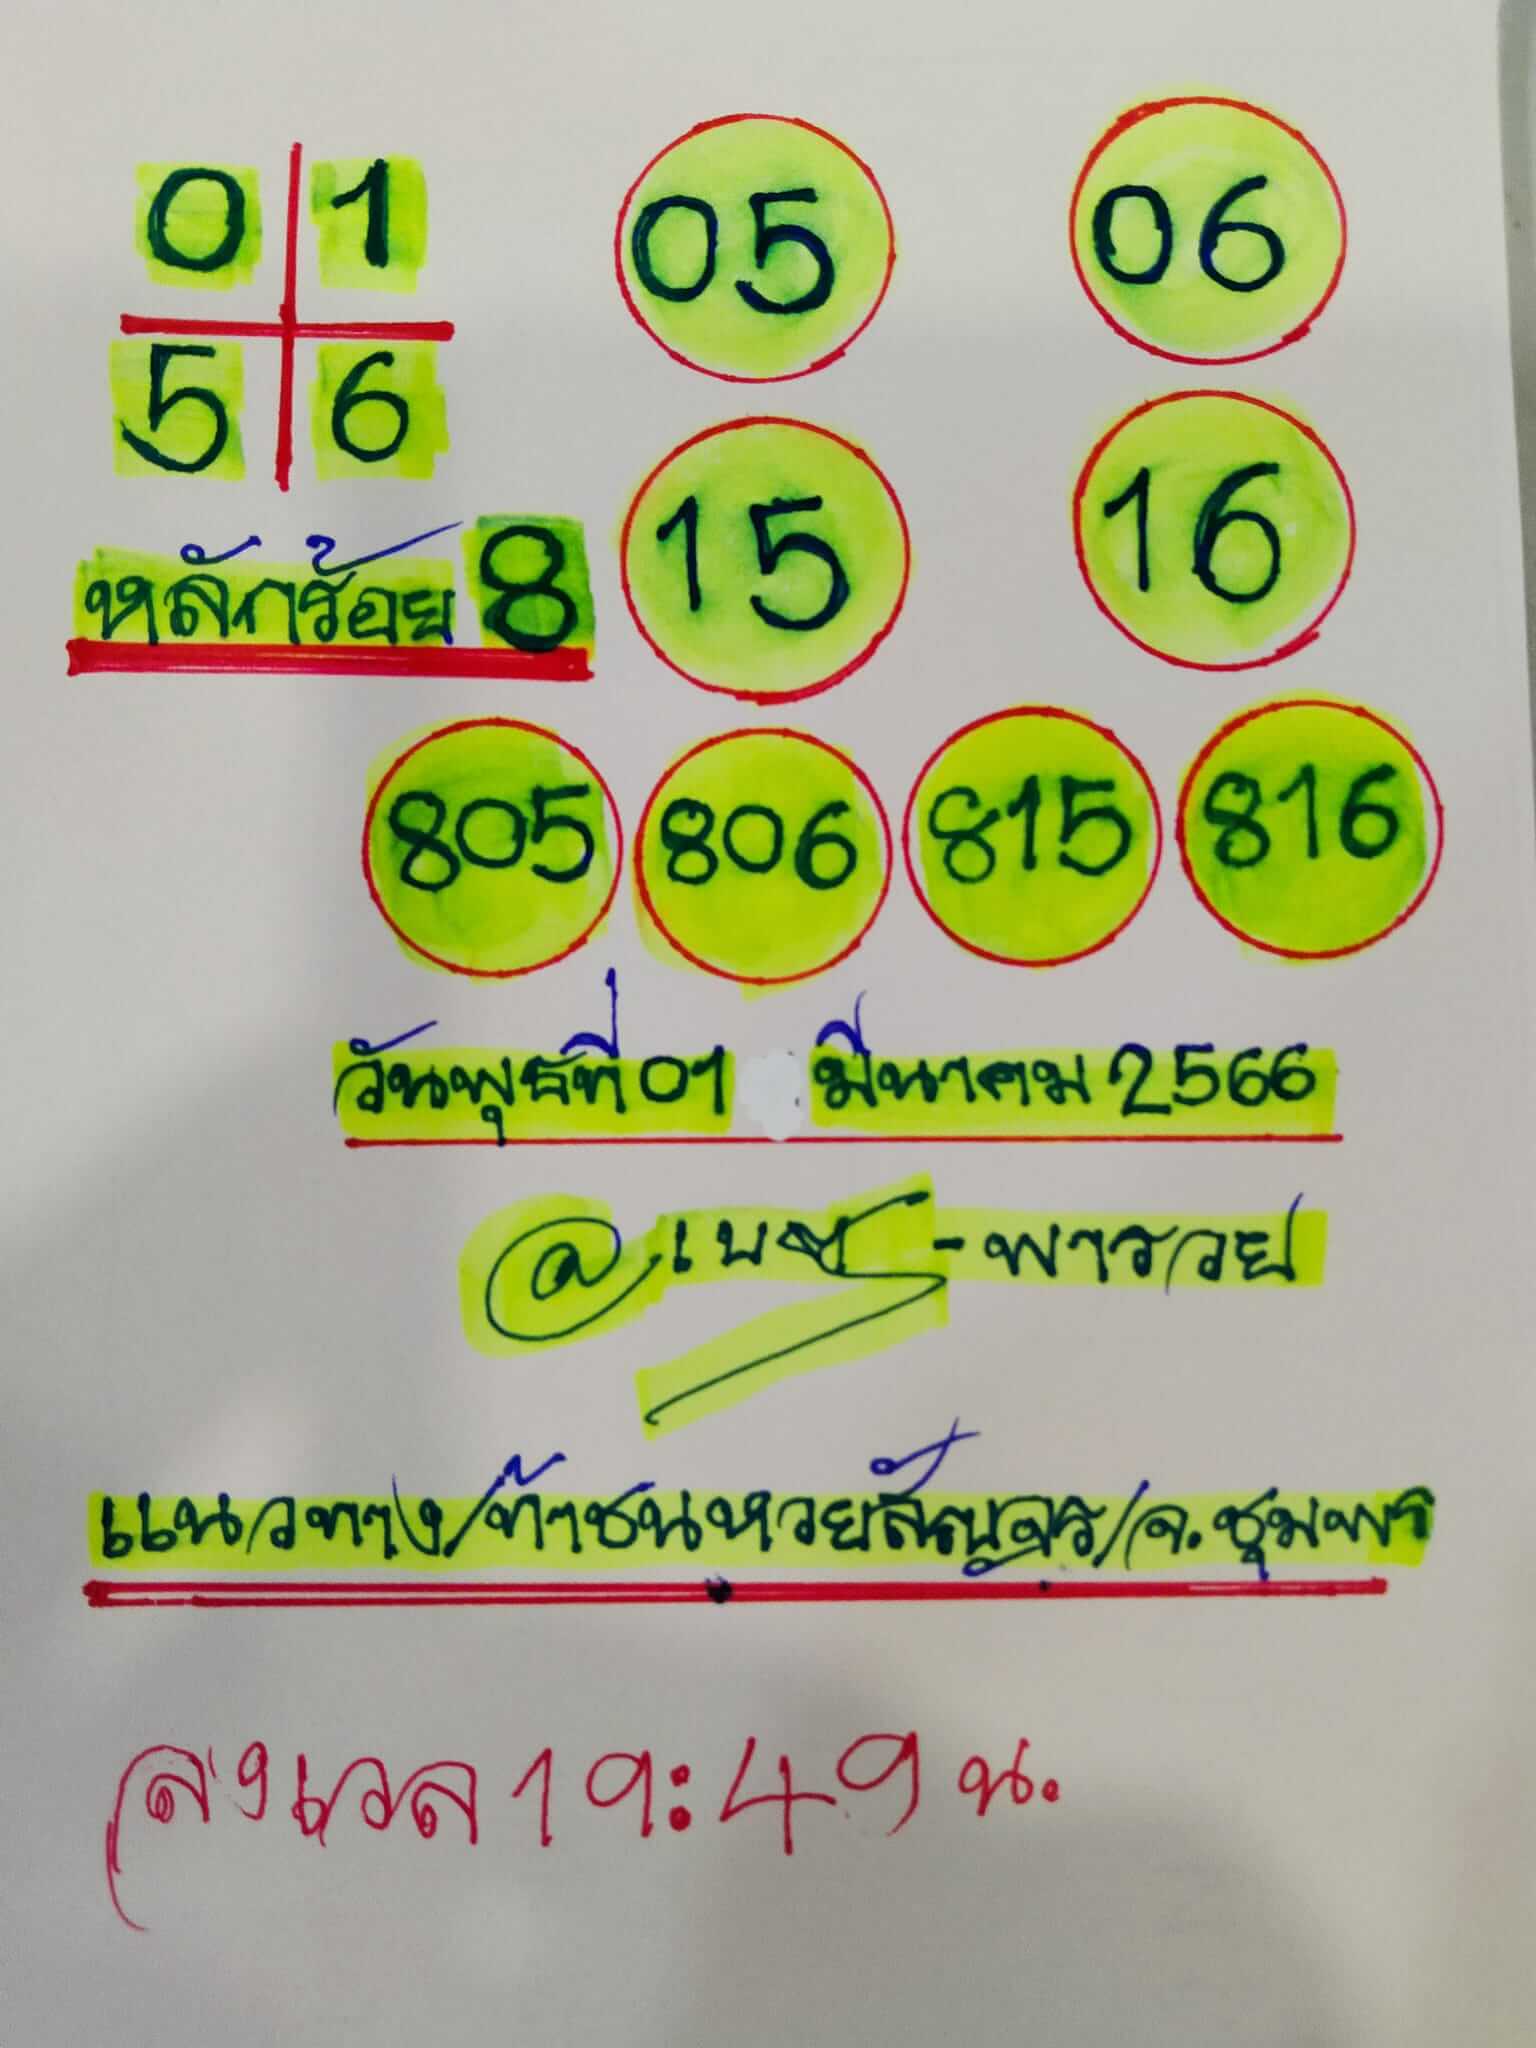 0 1
5 6
05 06
15 16
หลักร้อย 8
805 806 815 816
วันพุธที่ 01 มีนาคม 2566
@เบส-พารวย
แนวทาง/ท้าชนหวยสัญจร/จ.ชุมพร
ส่งเวลา 19:49 น.